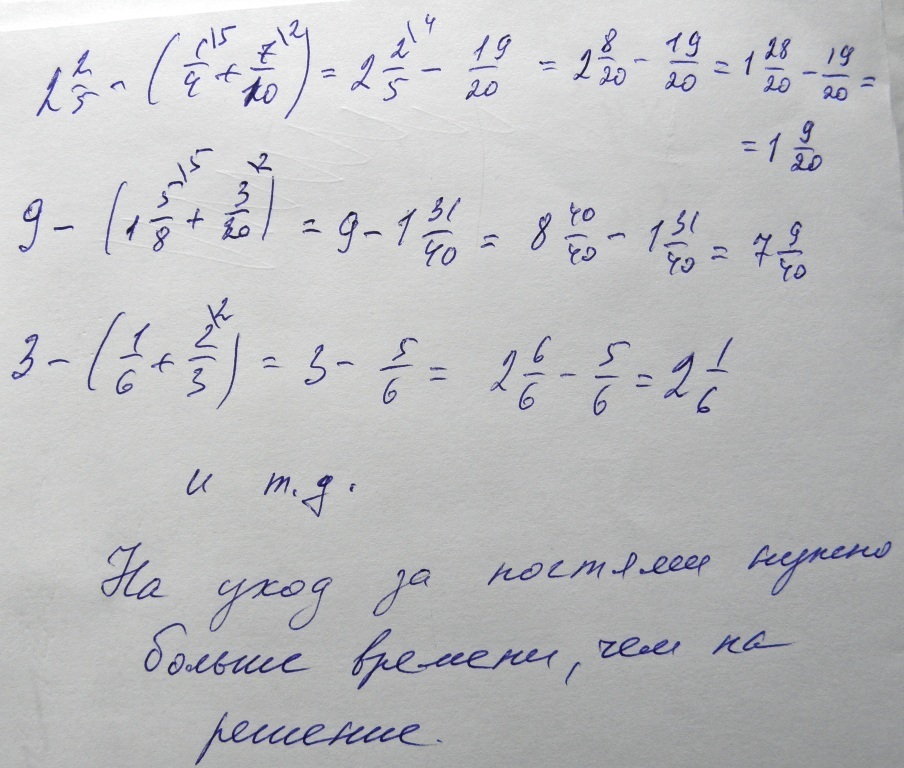 2 2/5 - (1\5/4 + 7\2/10) = 2 2\4/5 - 19/20 = 2 8/20 - 19/20 = 1 28/20 - 19/20 =
= 1 9/20
9 - (1 5\5/8 + 3\2/20) = 9 - 1 31/40 = 8 40/40 - 1 31/40 = 7 9/40
3 - (1/6 + 2\2/3) = 3 - 5/6 = 2 6/6 - 5/6 = 2 1/6
и т.д.
На уход за постями нужно
больше времени, чем на
решение.